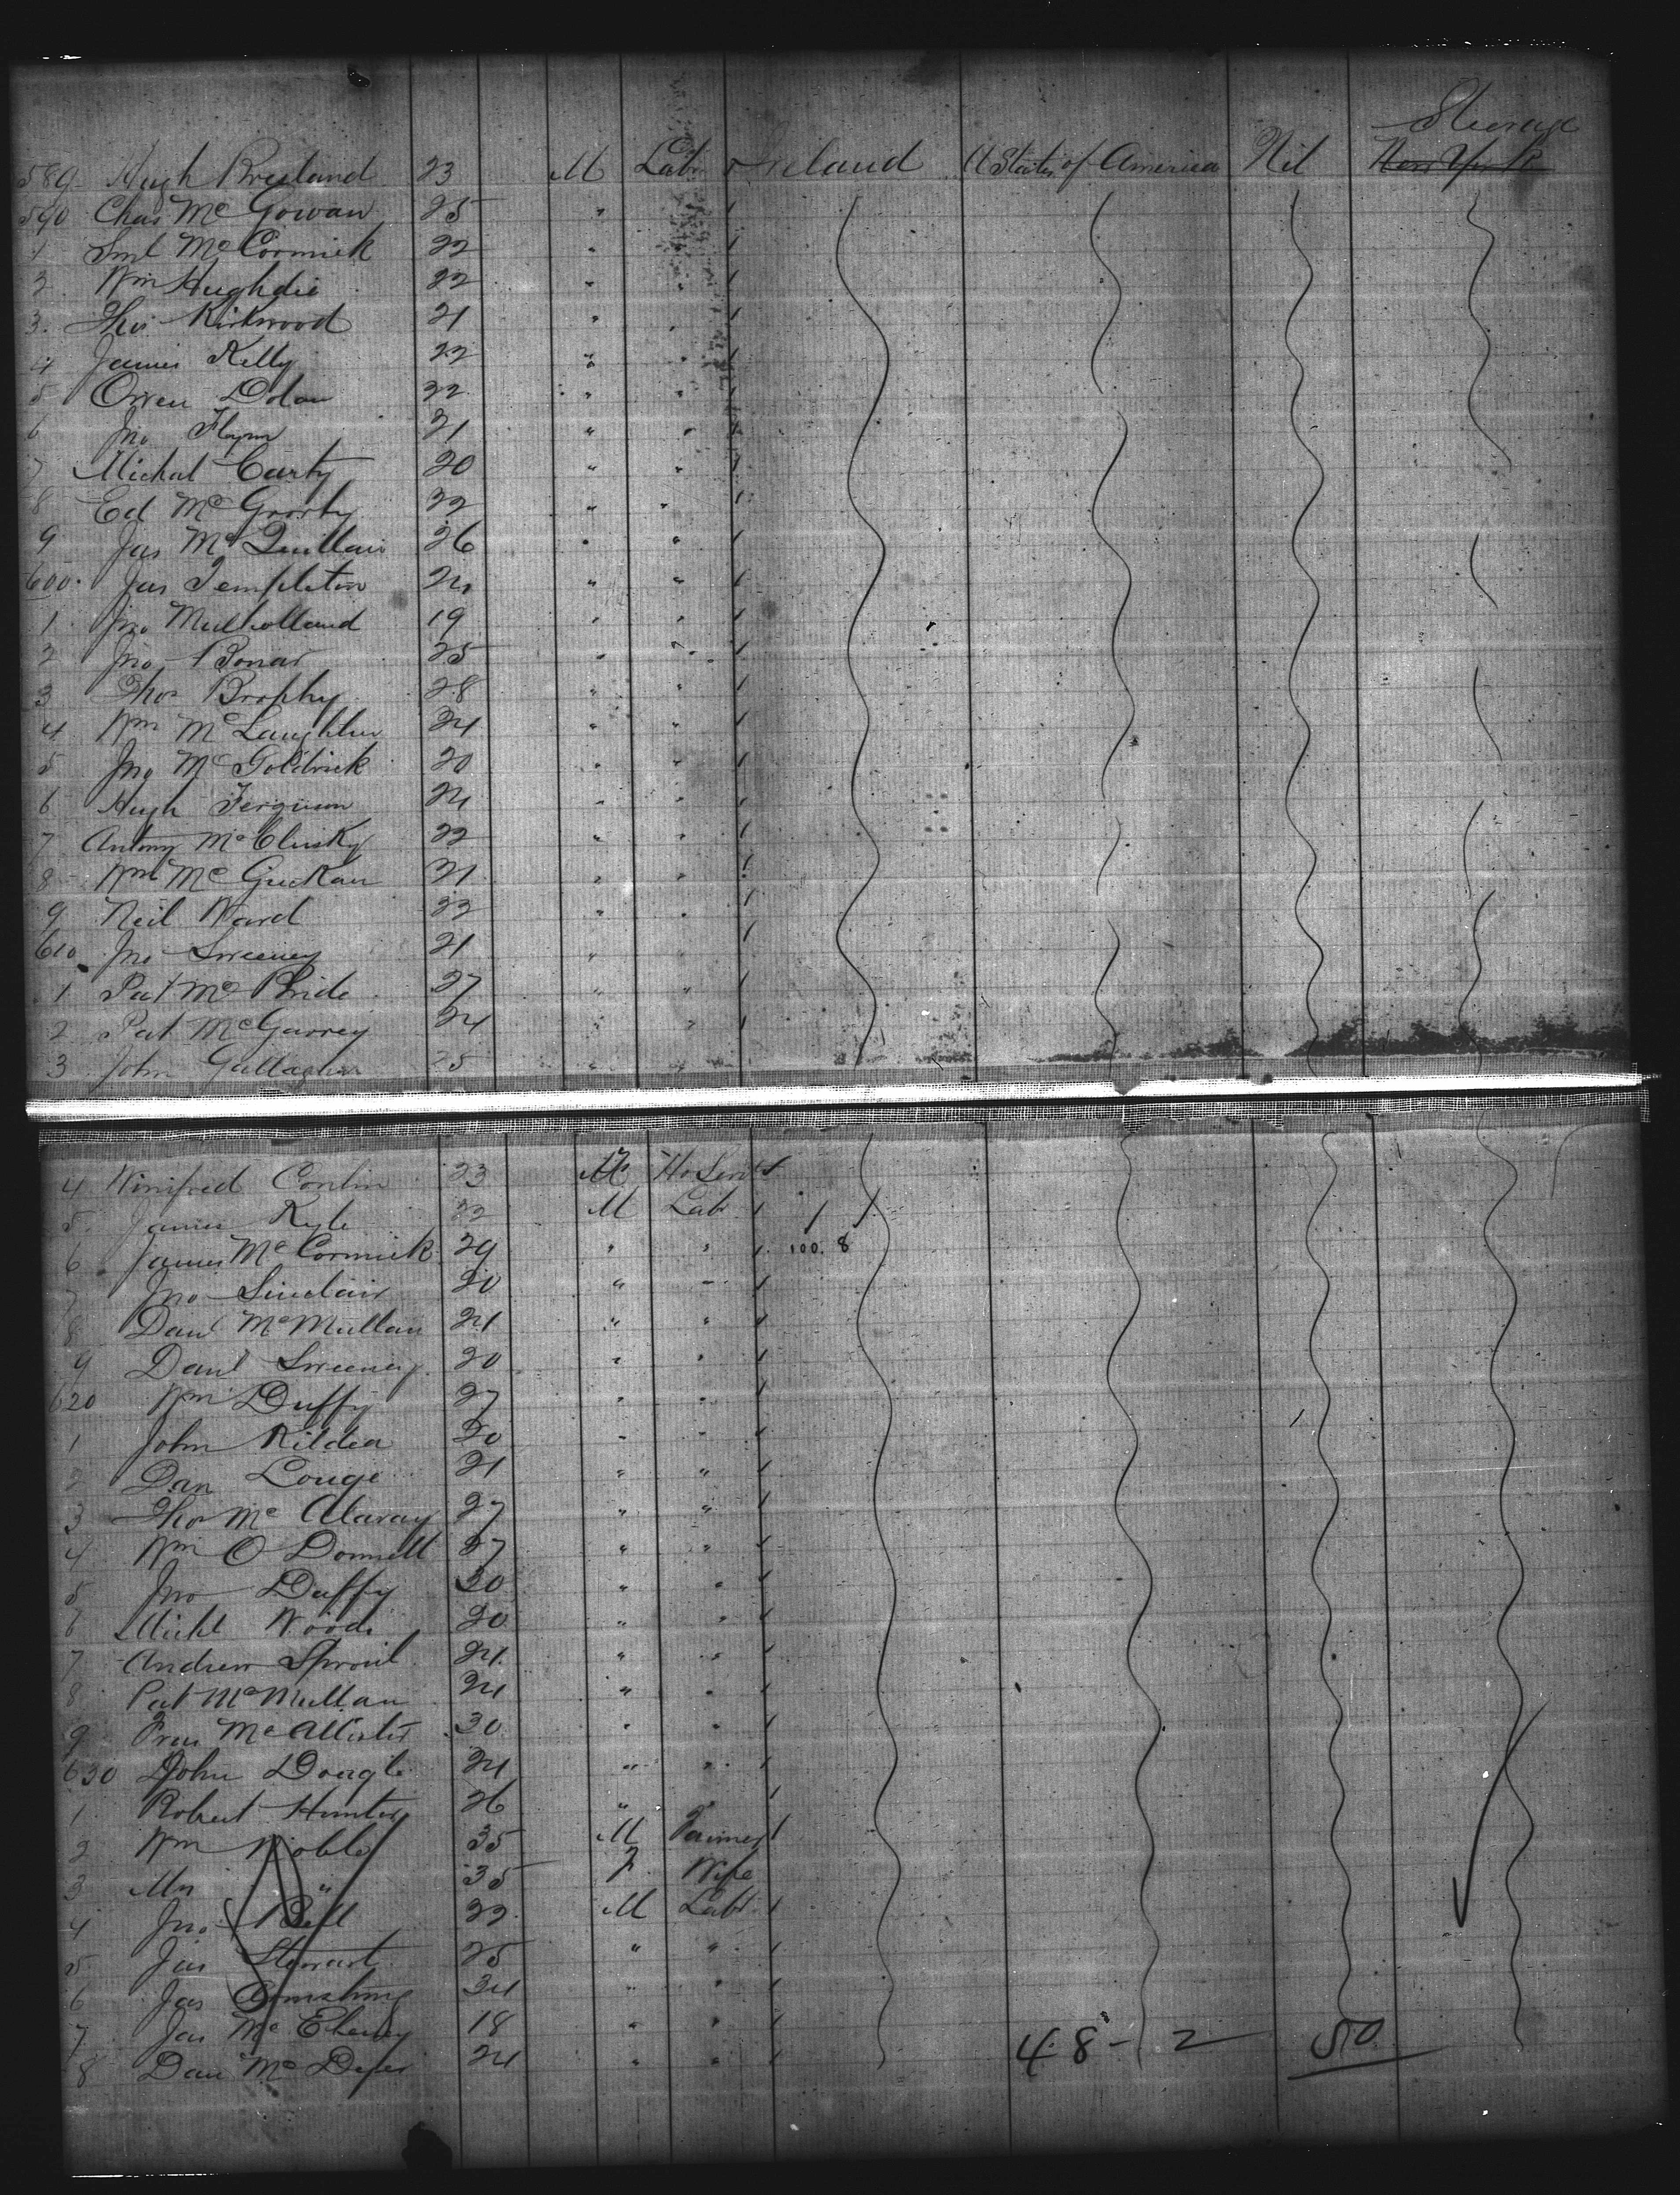 Steerage
589 Hugh Bresland 23 M Labr Ireland U States of America Nil New York
590 Chas Mc Gowan 25 " "
1 Saml Mc Cormick 22 " "
2 Wm Hughdie 22 " "
3. Thos Kirkwood 21 " "
4 James Kelly 22 " "
5 Owen Dolan 22 " "
6 Jno Flynn 21 " "
7 Michal Carty 20 " "
8 Ed Mc 22 " "
9 Jas Mc Quillan 26 " "
600. Jas Templeton 24 " "
1. Jno Mulholland 19 " "
2 Jno Bonar 25 " "
3 Thos Brophy 28 " "
4 Wm Mc Laughlin 24 " "
5 Jno Mc Goldrick 20 " "
6 Hugh Ferguson 24 " "
7 Antony Mc Clusky 22 " "
8 Wm Mc Guckan 21 " "
9 Neil Ward 22 " "
610 Jno Sweeney 21 " "
1 Pat Mc Bride 27 " "
2 Pat Mc Garvey 24 " "
3 John Gallagher 25 " "
4 Winifred Conlin 23 Ho Servt
5. James Kyle 22 M Labr
6 James Mc Cormick 29 " " 100. 8
7 Jno Sinclair 20 " "
8 Danl Mc Mullan 24 " "
9 Danl Sweeney 20 " "
620 Wm Duffy 27 " "
1 John Kildea 20 " "
2 Dan Louge 21 " "
3 Thos Mc 27 " "
4 Wm O Donnell 27 " "
5 Jno Duffy 30 " "
6 Michl Woods 20 " "
7 Andrew Sproul 24 " "
8 Pat Mc Mullan 24 " "
9 Fran Mc Allister 30 " "
630 John Doogle 24 " "
1. Robert Hunter 26 " "
2 Wm Noble 35 M Farmer
3 Mrs " 35 F Wife
4 Jno Bell 22 M Labr
5 Jas Stewart 25 " "
6 Jas Armstrong 34 " "
7 Jas Mc 18 " "
8 Dan Mc 24 " "
48 - 2 50